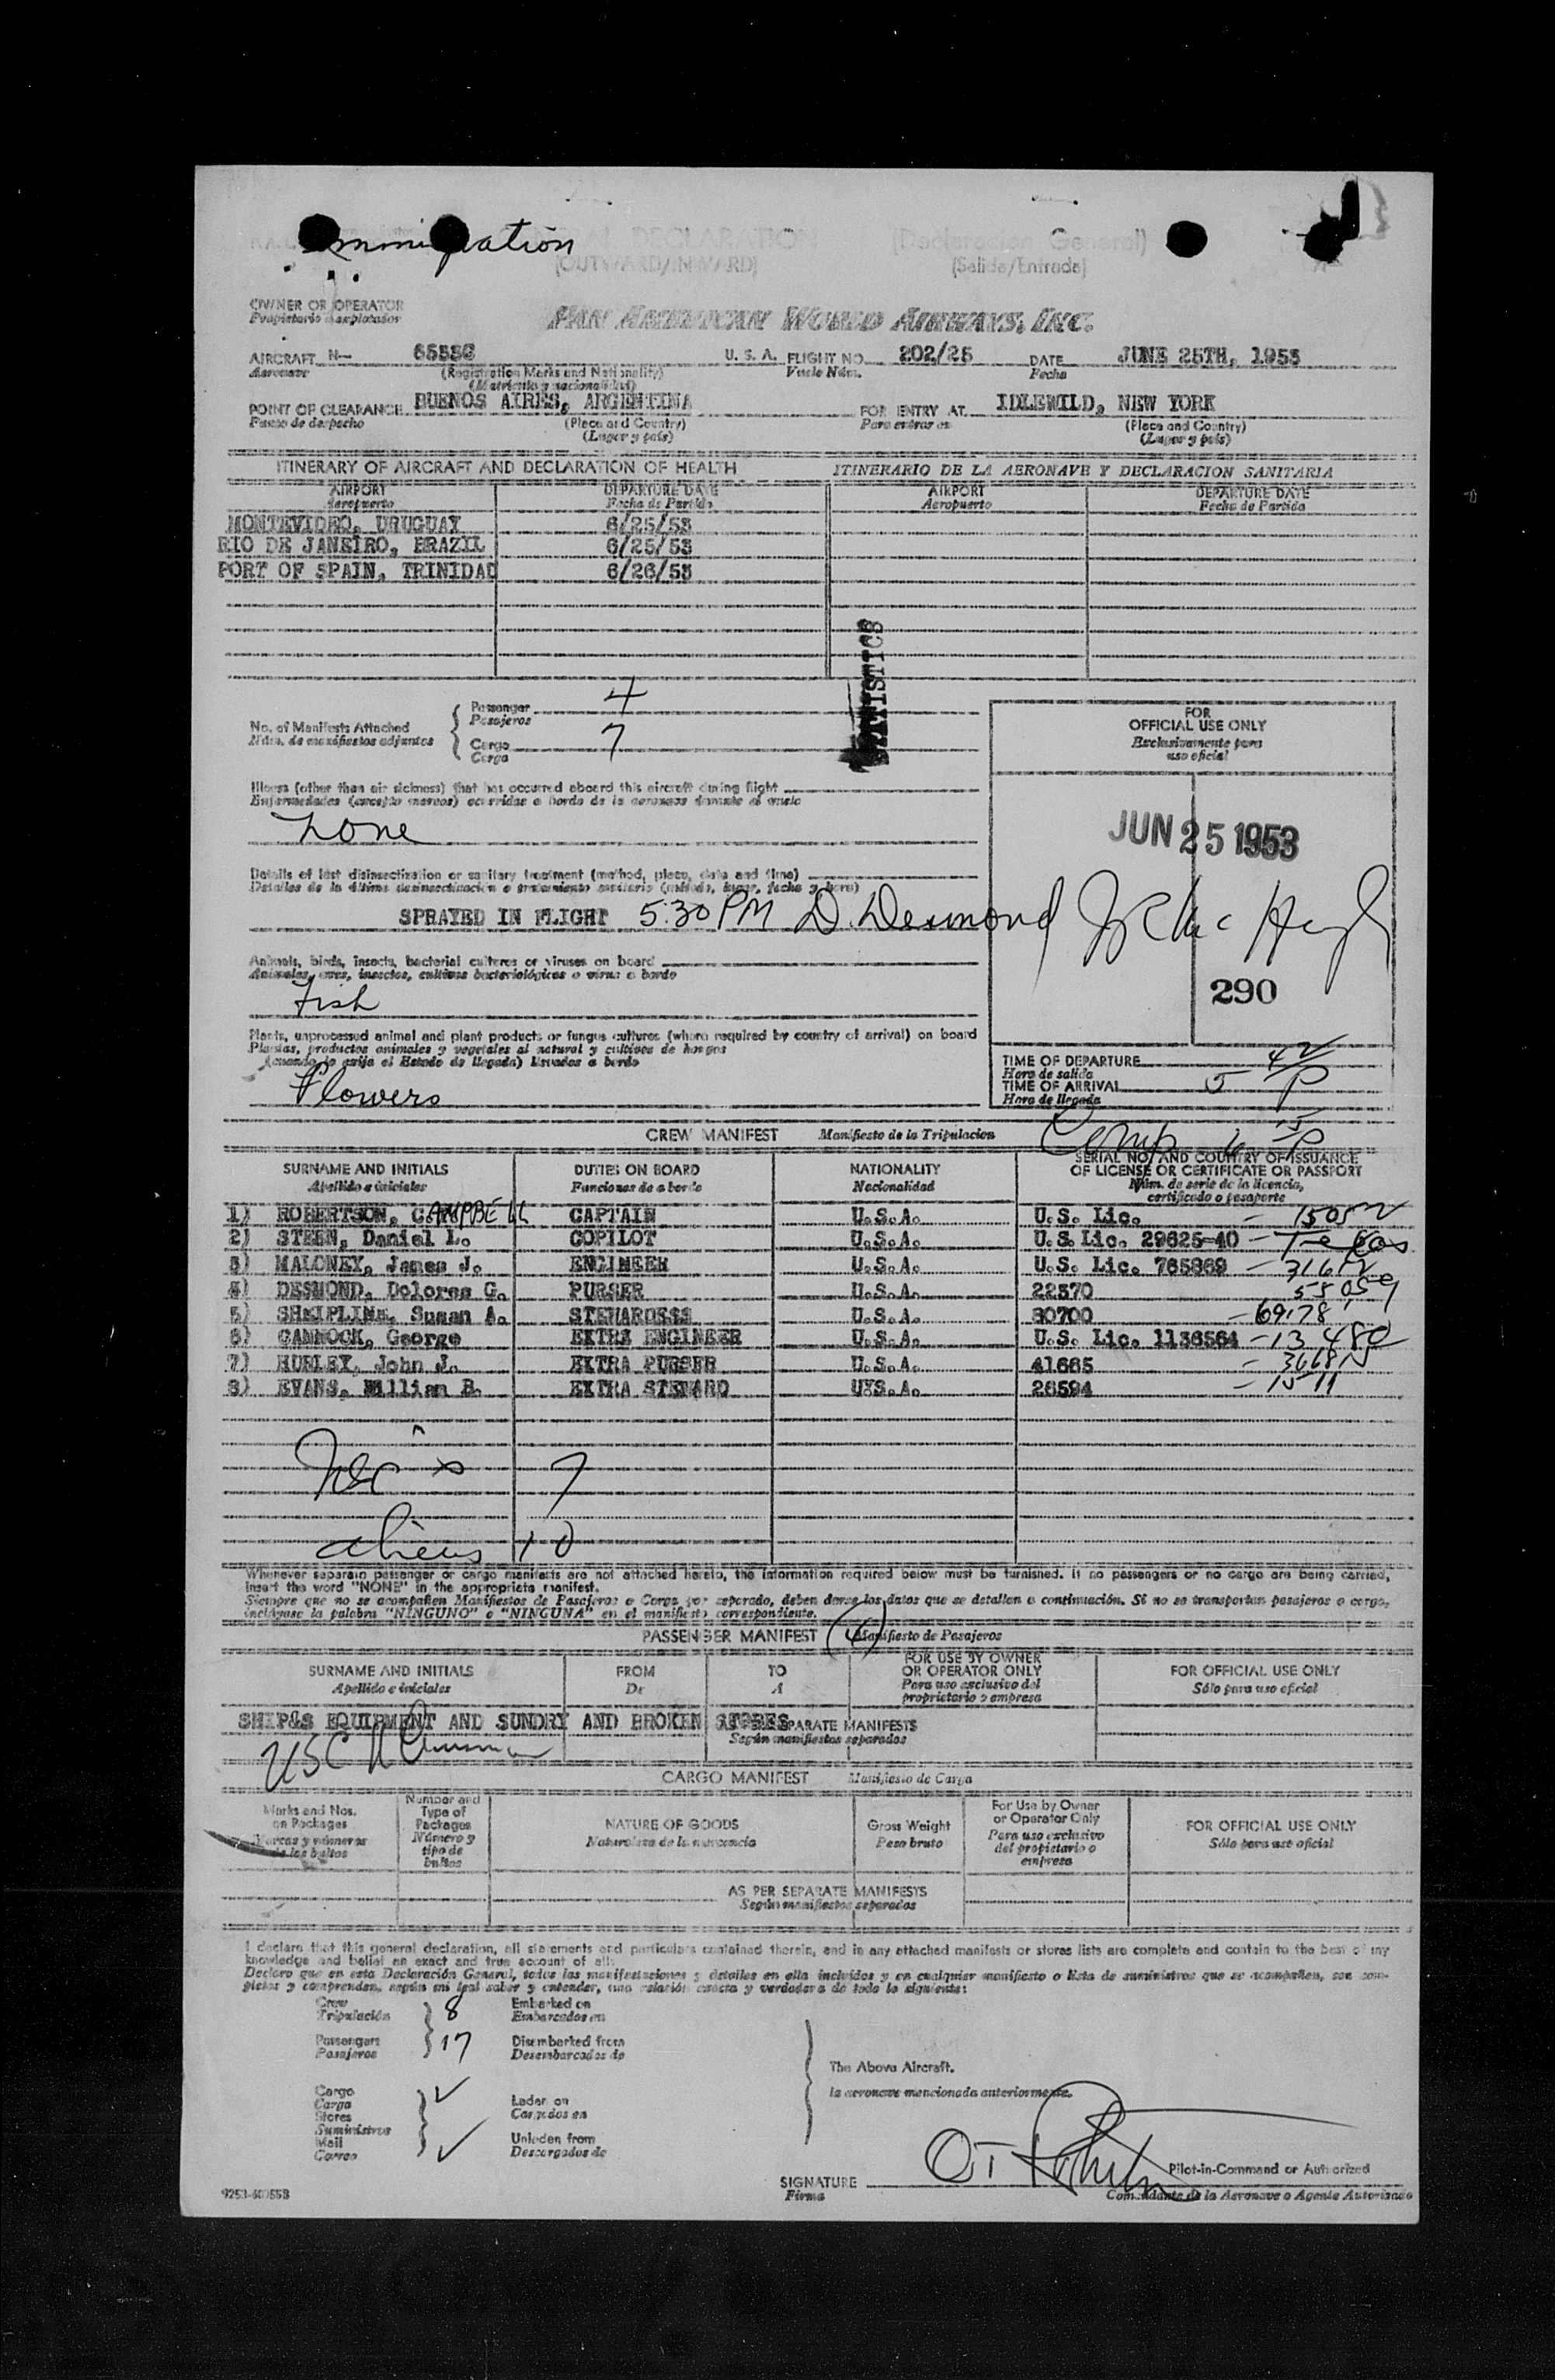 Immigration
GENERAL DECLARATION (Declaracion General)
(OUTWARD/INWARD) (Salida/Entrada)
OWNER OR OPERATOR
Propietario o explotador
PAN AMERICAN WORLD AIRWAYS, INC.
AIRCRAFT N— 6535C U. S. A. FLIGHT NO. 202/25 DATE JUNE 25TH, 1953
Aeronave (Registration Marks and Nationality) Vuelo Núm. Fecha
(Matrícula y nacionalidad)
POINT OF CLEARANCE BUENOS AIRES, ARGENTINA FOR ENTRY AT IDLEWILD, NEW YORK
Punto de despacho (Place and Country) Para entrar en (Place and Country)
(Lugar y país) (Lugar y país)
ITINERARY OF AIRCRAFT AND DECLARATION OF HEALTH ITINERARIO DE LA AERONAVE Y DECLARACION SANITARIA
AIRPORT DEPARTURE DATE AIRPORT DEPARTURE DATE
Aeropuerto Fecha de Partida Aeropuerto Fecha de Partida
MONTEVIDEO, URUGUAY 6/25/53
RIO DE JANEIRO, BRAZIL 6/25/53
PORT OF SPAIN, TRINIDAD 6/26/53
STATISTICS
No. of Manifests Attached
Núm. de manifiestos adjuntos
Passenger 4
Pasajeros
Cargo 7
Carga
FOR
OFFICIAL USE ONLY
Exclusivamente para
uso oficial
Illness (other than air sickness) that has occurred aboard this aircraft during flight
Enfermedades (excepto mareos) ocurridas a bordo de la aeronave durante el vuelo
none
JUN 25 1953
Details of last disinsectization or sanitary treatment (method, place, date and time)
Detalles de la última desinsectización o tratamiento sanitario (método, lugar, fecha y hora)
SPRAYED IN FLIGHT 5:30 PM D. Desmond
290
Animals, birds, insects, bacterial cultures or viruses on board
Animales, aves, insectos, cultivos bacteriológicos o virus a bordo
Fish
Plants, unprocessed animal and plant products or fungus cultures (where required by country of arrival) on board
Plantas, productos animales y vegetales al natural y cultivos de hongos
(cuando lo exija el Estado de llegada) llevados a bordo
Flowers
TIME OF DEPARTURE
Hora de salida
TIME OF ARRIVAL 5 42 P
Hora de llegada
CREW MANIFEST Manifiesto de la Tripulacion Comp 6 15 P
SURNAME AND INITIALS DUTIES ON BOARD NATIONALITY SERIAL NO. AND COUNTRY OF ISSUANCE
OF LICENSE OR CERTIFICATE OR PASSPORT
Apellido e iniciales Funciones de a bordo Nacionalidad Núm. de serie de la licencia,
certificado o pasaporte
1) ROBERTSON, CAMPBELL CAPTAIN U.S.A. U.S. Lic.
2) STEEN, Daniel L. COPILOT U.S.A. U.S. Lic. 29625-40 – Texas
3) MALONEY, James J. ENGINEER U.S.A. U.S. Lic. 765869
4) DESMOND, Dolores G. PURSER U.S.A. 22370
5) SHEIPLINE, Susan A. STEWARDESS U.S.A. 30700 – 69178
6) CANNOCK, George EXTRA ENGINEER U.S.A. U.S. Lic. 1136564
7) HURLEY, John J. EXTRA PURSER U.S.A. 41665
8) EVANS, William B. EXTRA STEWARD UYS.A. 26594 – 1511
7
aliens 10
Whenever separate passenger or cargo manifests are not attached hereto, the information required below must be furnished. If no passengers or no cargo are being carried,
insert the word "NONE" in the appropriate manifest.
Siempre que no se acompañen Manifiestos de Pasajeros o Carga por separado, deben darse los datos que se detallan a continuación. Si no se transportan pasajeros o carga,
inclúyase la palabra "NINGUNO" o "NINGUNA" en el manifiesto correspondiente.
PASSENGER MANIFEST (4) Manifiesto de Pasajeros
SURNAME AND INITIALS FROM TO FOR USE BY OWNER
OR OPERATOR ONLY FOR OFFICIAL USE ONLY
Apellido e iniciales De A Para uso exclusivo del
propietario o empresa Sólo para uso oficial
SHIP&S EQUIPMENT AND SUNDRY AND BROKEN STORES
AS PER SEPARATE MANIFESTS
Según manifiestos separados
CARGO MANIFEST Manifiesto de Carga
Marks and Nos.
on Packages
Marcas y números
de los bultos
Number and
Type of
Packages
Número y
tipo de
bultos
NATURE OF GOODS
Naturaleza de la mercancía
Gross Weight
Peso bruto
For Use by Owner
or Operator Only
Para uso exclusivo
del propietario o
empresa
FOR OFFICIAL USE ONLY
Sólo para uso oficial
AS PER SEPARATE MANIFESTS
Según manifiestos separados
I declare that this general declaration, all statements and particulars contained therein, and in any attached manifests or stores lists are complete and contain to the best of my
knowledge and belief an exact and true account of all:
Declaro que en esta Declaración General, todas las manifestaciones y detalles en ella incluidos y en cualquier manifiesto o lista de suministros que se acompañen, son com-
pletos y comprenden, según mi leal saber y entender, una relación exacta y verdadera de todo lo siguiente:
Crew 8 Embarked on
Tripulación Embarcados en
Passengers 17 Disembarked from
Pasajeros Desembarcados de
The Above Aircraft.
la aeronave mencionada anteriormente.
Cargo
Carga Laden on
Stores Cargados en
Suministros
Mail Unladen from
Correo Descargados de
SIGNATURE Pilot-in-Command or Authorized
Firma Comandante de la Aeronave o Agente Autorizado